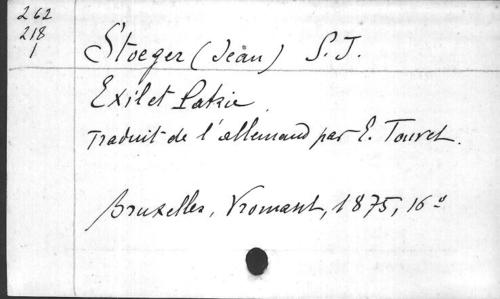 262
218
1
Stoeger (Jean) S.J.
Exil et Patrie
Traduit de l'allemand par E. Touret.
Bruxelles, Vromant, 1875, 16º